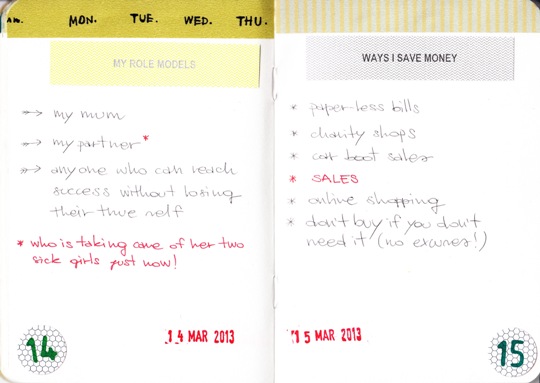 MON. TUE. WED. THU.
MY ROLE MODELS
my mum
my partner*
anyone who can reach
success without losing
their true self
* who is taking care of her two
sick girls just now!
14 MAR 2013
14
WAYS I SAVE MONEY
* paperless bills
* charity shops
* car boot sales
* SALES
* online shopping
* don't buy if you don't
need it (no excuses!)
15 MAR 2013
15